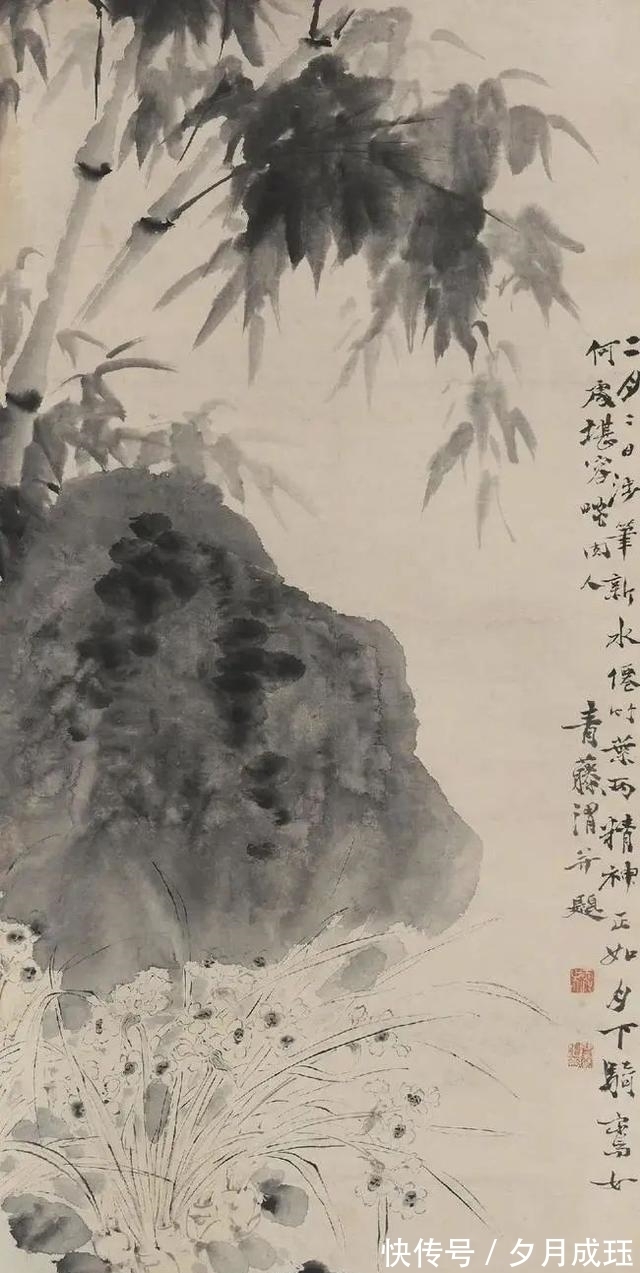 二月二日涉筆新水僊竹葉兩精神正如月下騎鸞女
何處堪容啖肉人
青藤渭并題
快传号 / 夕月成珏